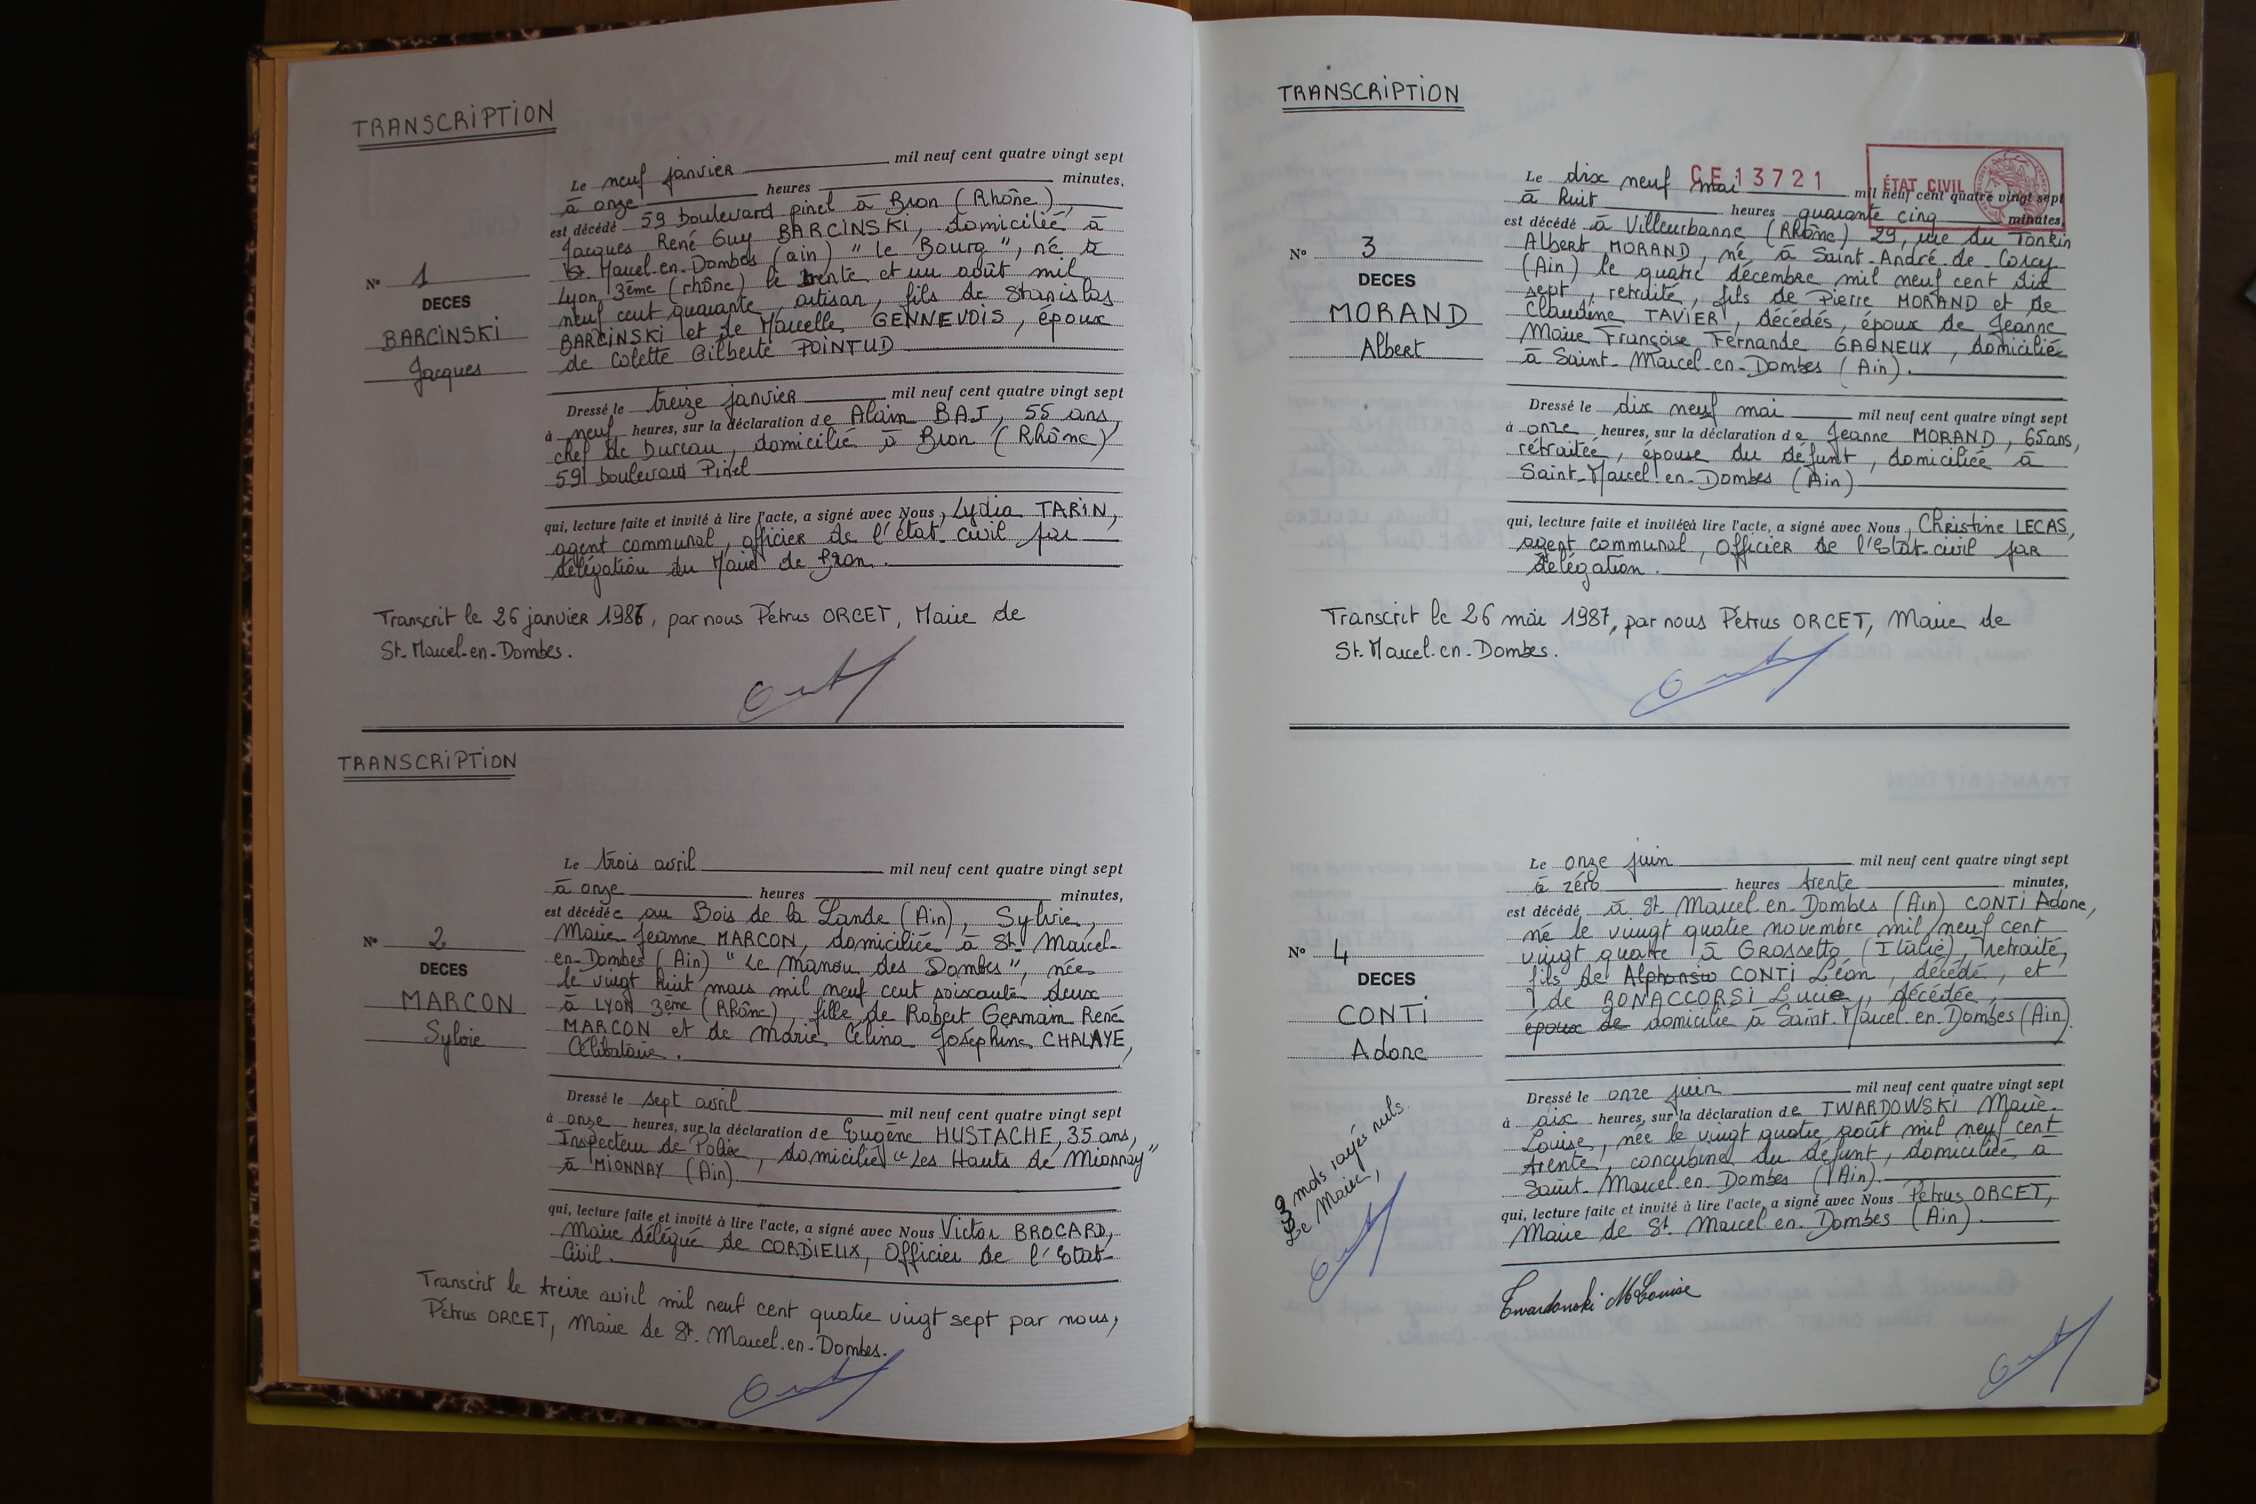 TRANSCRIPTION
Le neuf janvier mil neuf cent quatre vingt sept
à onze heures minutes,
est décédé 59 boulevard pinel à Bron (Rhône),
Jacques René Guy BARCINSKI, domicilié à
St Marcel-en-Dombes (ain) "le Bourg", né à
Lyon 3ème (rhône) le trente et un août mil
neuf cent quarante, artisan, fils de Stanislas
BARCINSKI et de Marcelle GENNEVOIS, époux
de Colette Gilberte POINTUD
N° 1
DECES
BARCINSKI
Jacques
Dressé le treize janvier mil neuf cent quatre vingt sept
à neuf heures, sur la déclaration de Alain BAJ, 55 ans,
chef de bureau, domicilié à Bron (Rhône)
59 boulevard Pinel
qui, lecture faite et invité à lire l'acte, a signé avec Nous, Lydia TARIN,
agent communal, officier de l'état-civil par
délégation du Maire de Bron.
Transcrit le 26 janvier 1987, par nous Pétrus ORCET, Maire de
St-Marcel-en-Dombes.
TRANSCRIPTION
Le trois avril mil neuf cent quatre vingt sept
à onze heures minutes,
est décédée au Bois de la Lande (Ain), Sylvie,
Marie Jeanne MARCON, domiciliée à St Marcel-
en-Dombes (Ain) "Le manou des Dombes", née
le vingt huit mars mil neuf cent soixante deux
à LYON 3ème (Rhône), fille de Robert Germain René
MARCON et de Marie Célina Joséphine CHALAYE,
Célibataire.
N° 2
DECES
MARCON
Sylvie
Dressé le sept avril mil neuf cent quatre vingt sept
à onze heures, sur la déclaration de Eugène HUSTACHE, 35 ans,
Inspecteur de Police, domicilié "Les Hauts de Mionnay"
à MIONNAY (Ain).
qui, lecture faite et invité à lire l'acte, a signé avec Nous Victor BROCARD,
Maire délégué de CORDIEUX, Officier de l'Etat-
Civil.
Transcrit le treize avril mil neuf cent quatre vingt sept par nous,
Pétrus ORCET, Maire de St. Marcel-en-Dombes.
TRANSCRIPTION
CE13721
ÉTAT CIVIL
Le dix neuf mai mil neuf cent quatre vingt sept
à huit heures quarante cinq minutes,
est décédé à Villeurbanne (Rhône) 29, rue du Tonkin
Albert MORAND, né à Saint-André-de-Corcy
(Ain) le quatre décembre mil neuf cent dix
sept, retraité, fils de Pierre MORAND et de
Claudine TAVIER, décédés, époux de Jeanne
Marie Françoise Fernande GAGNEUX, domicilié
à Saint-Marcel-en-Dombes (Ain).
N° 3
DECES
MORAND
Albert
Dressé le dix neuf mai mil neuf cent quatre vingt sept
à onze heures, sur la déclaration de Jeanne MORAND, 65 ans,
rétraitée, épouse du défunt, domiciliée à
Saint-Marcel-en-Dombes (Ain)
qui, lecture faite et invitée à lire l'acte, a signé avec Nous, Christine LECAS,
agent communal, Officier de l'Etat-civil par
délégation.
Transcrit le 26 mai 1987, par nous Pétrus ORCET, Maire de
St-Marcel-en-Dombes.
Le onze juin mil neuf cent quatre vingt sept
à zéro heures trente minutes,
est décédé à St Marcel-en-Dombes (Ain) CONTI Adone,
né le vingt quatre novembre mil neuf cent
vingt quatre à GROSSETO (Italie), retraité,
fils de Alphonsio CONTI Léon, décédé, et
de BONACCORSI Lucie, décédée,
époux de domicilié à Saint-Marcel-en-Dombes (Ain).
N° 4
DECES
CONTI
Adone
3 mots rayés nuls.
Le Maire,
Dressé le onze juin mil neuf cent quatre vingt sept
à dix heures, sur la déclaration de TWARDOWSKI Marie-
Louise, née le vingt quatre août mil neuf cent
trente, concubine du défunt, domiciliée à
Saint-Marcel-en-Dombes (Ain).
qui, lecture faite et invité à lire l'acte, a signé avec Nous Pétrus ORCET,
Maire de St Marcel-en-Dombes (Ain).
Twardowski M Louise